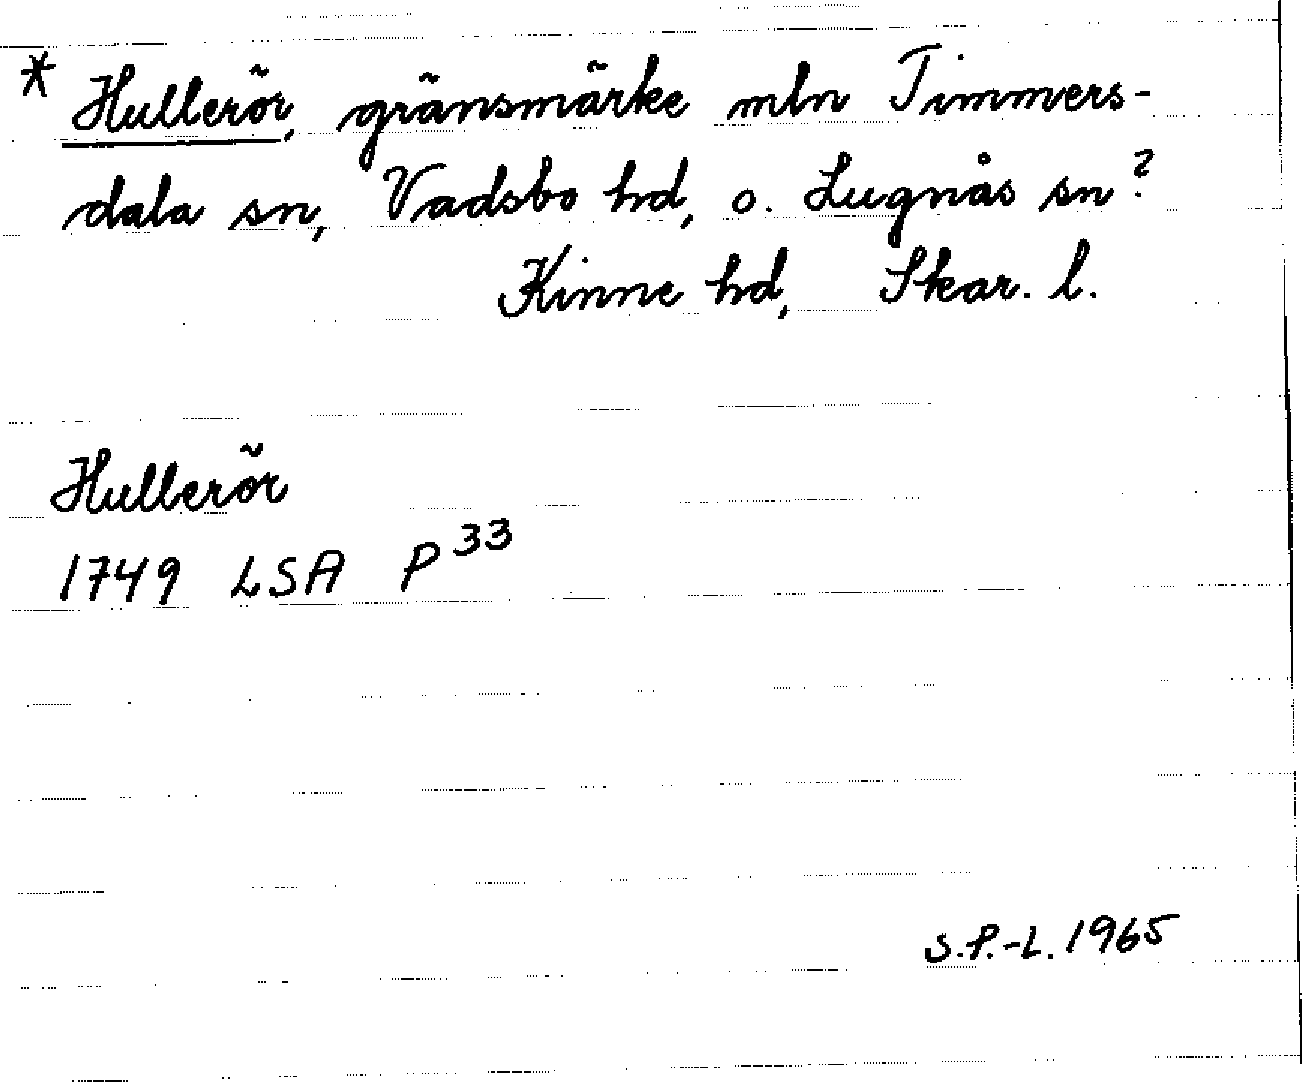 * Hullerör, gränsmärke mln Timmers-
dala sn, Vadsbo hd, o. Lugnås sn?
Kinne hd, Skar. l.
Hullerör
1749 LSA P 33
S.P.-L. 1965